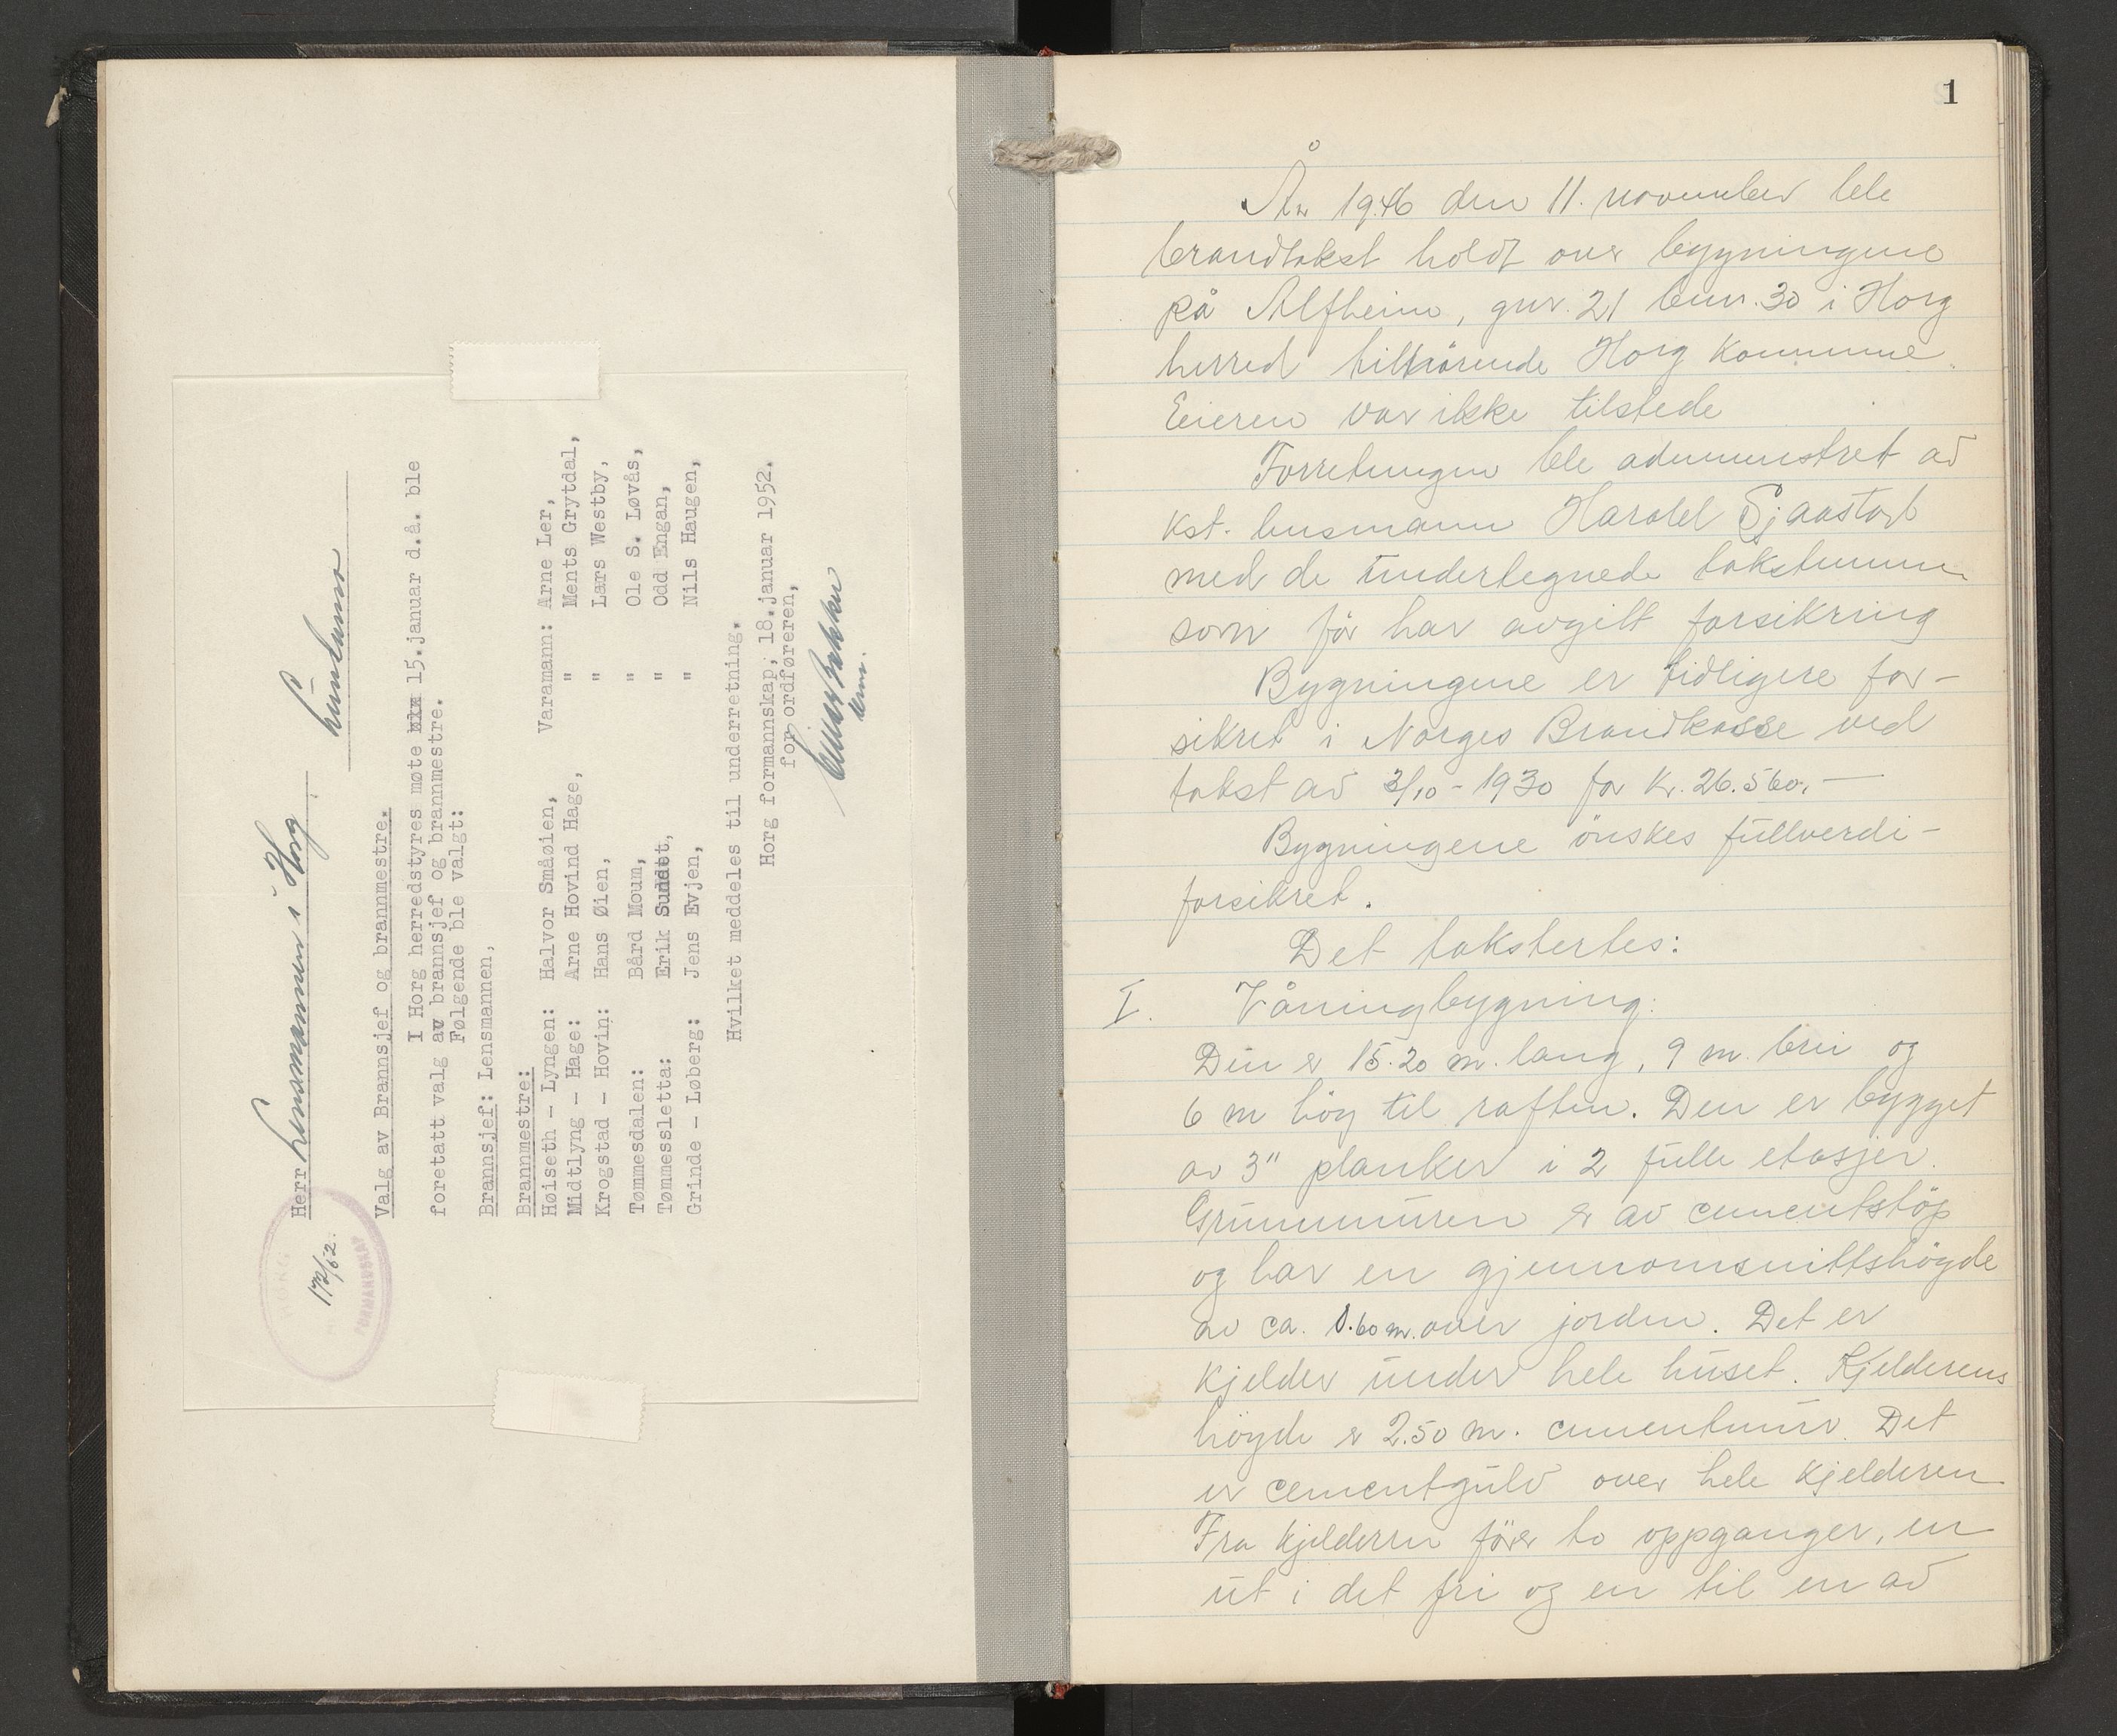 Herr Lensmannen i Horg.
Lundamo
Valg av Brannsjef og brannmestre.
I Horg herredstyres møte 15.januar d.å. ble
foretatt valg av brannsjef og brannmestre.
Følgende ble valgt:
Brannsjef: Lensmannen.
Brannmestre:
Høiseth - Lyngen: Halvor Småøien, Varamann: Arne Ler,
Midtlyng - Hage: Arne Hovind Hage, " Ments Grytdal,
Krogstad - Hovin: Hans Øien, " Lars Westby,
Tømmesdalen: Bård Moum, " Ole S. Løvås,
Tømmessletta: Erik Sundet, " Odd Engan,
Grinde - Løberg: Jens Evjen, " Nils Haugen,
Hvilket meddeles til underretning.
Horg formannskap, 18.januar 1952.
for ordføreren,
HORG
FORMANDSKAP
1
År 1946 den 11. november ble
brandtakst holdt over bygningene
på Alfheim, gnr. 21 bnr. 30 i Horg
herred tilhörende Horg kommune.
Eieren var ikke tilstede
Forretningen ble administret av
kst. lensmann Harald Sjaastad
med de undertegnede takstmenn
som för har avgitt forsikring
Bygningene er tidligere for-
sikret i Norges Brandkasse ved
takst av 3/10 - 1930 for kr. 26.560.-
Bygningene önskes fullverdi-
forsikret.
Det taksertes:
I. Våningbygning:
Den er 15.20 m. lang, 9 m. brei og
6 m hög til raften. Den er bygget
av 3" planker i 2 fulle etasjer.
Grunnmuren er av cementstöp
og har en gjennomsnittshögde
av ca. 0.60 m. over jorden. Det er
kjelder under hele huset. Kjelderens
högde er 2.50 m. cementmur. Det
er cementgulv over hele kjelderen
Fra kjelderen förer to oppganger, en
ut i det fri og en til en av